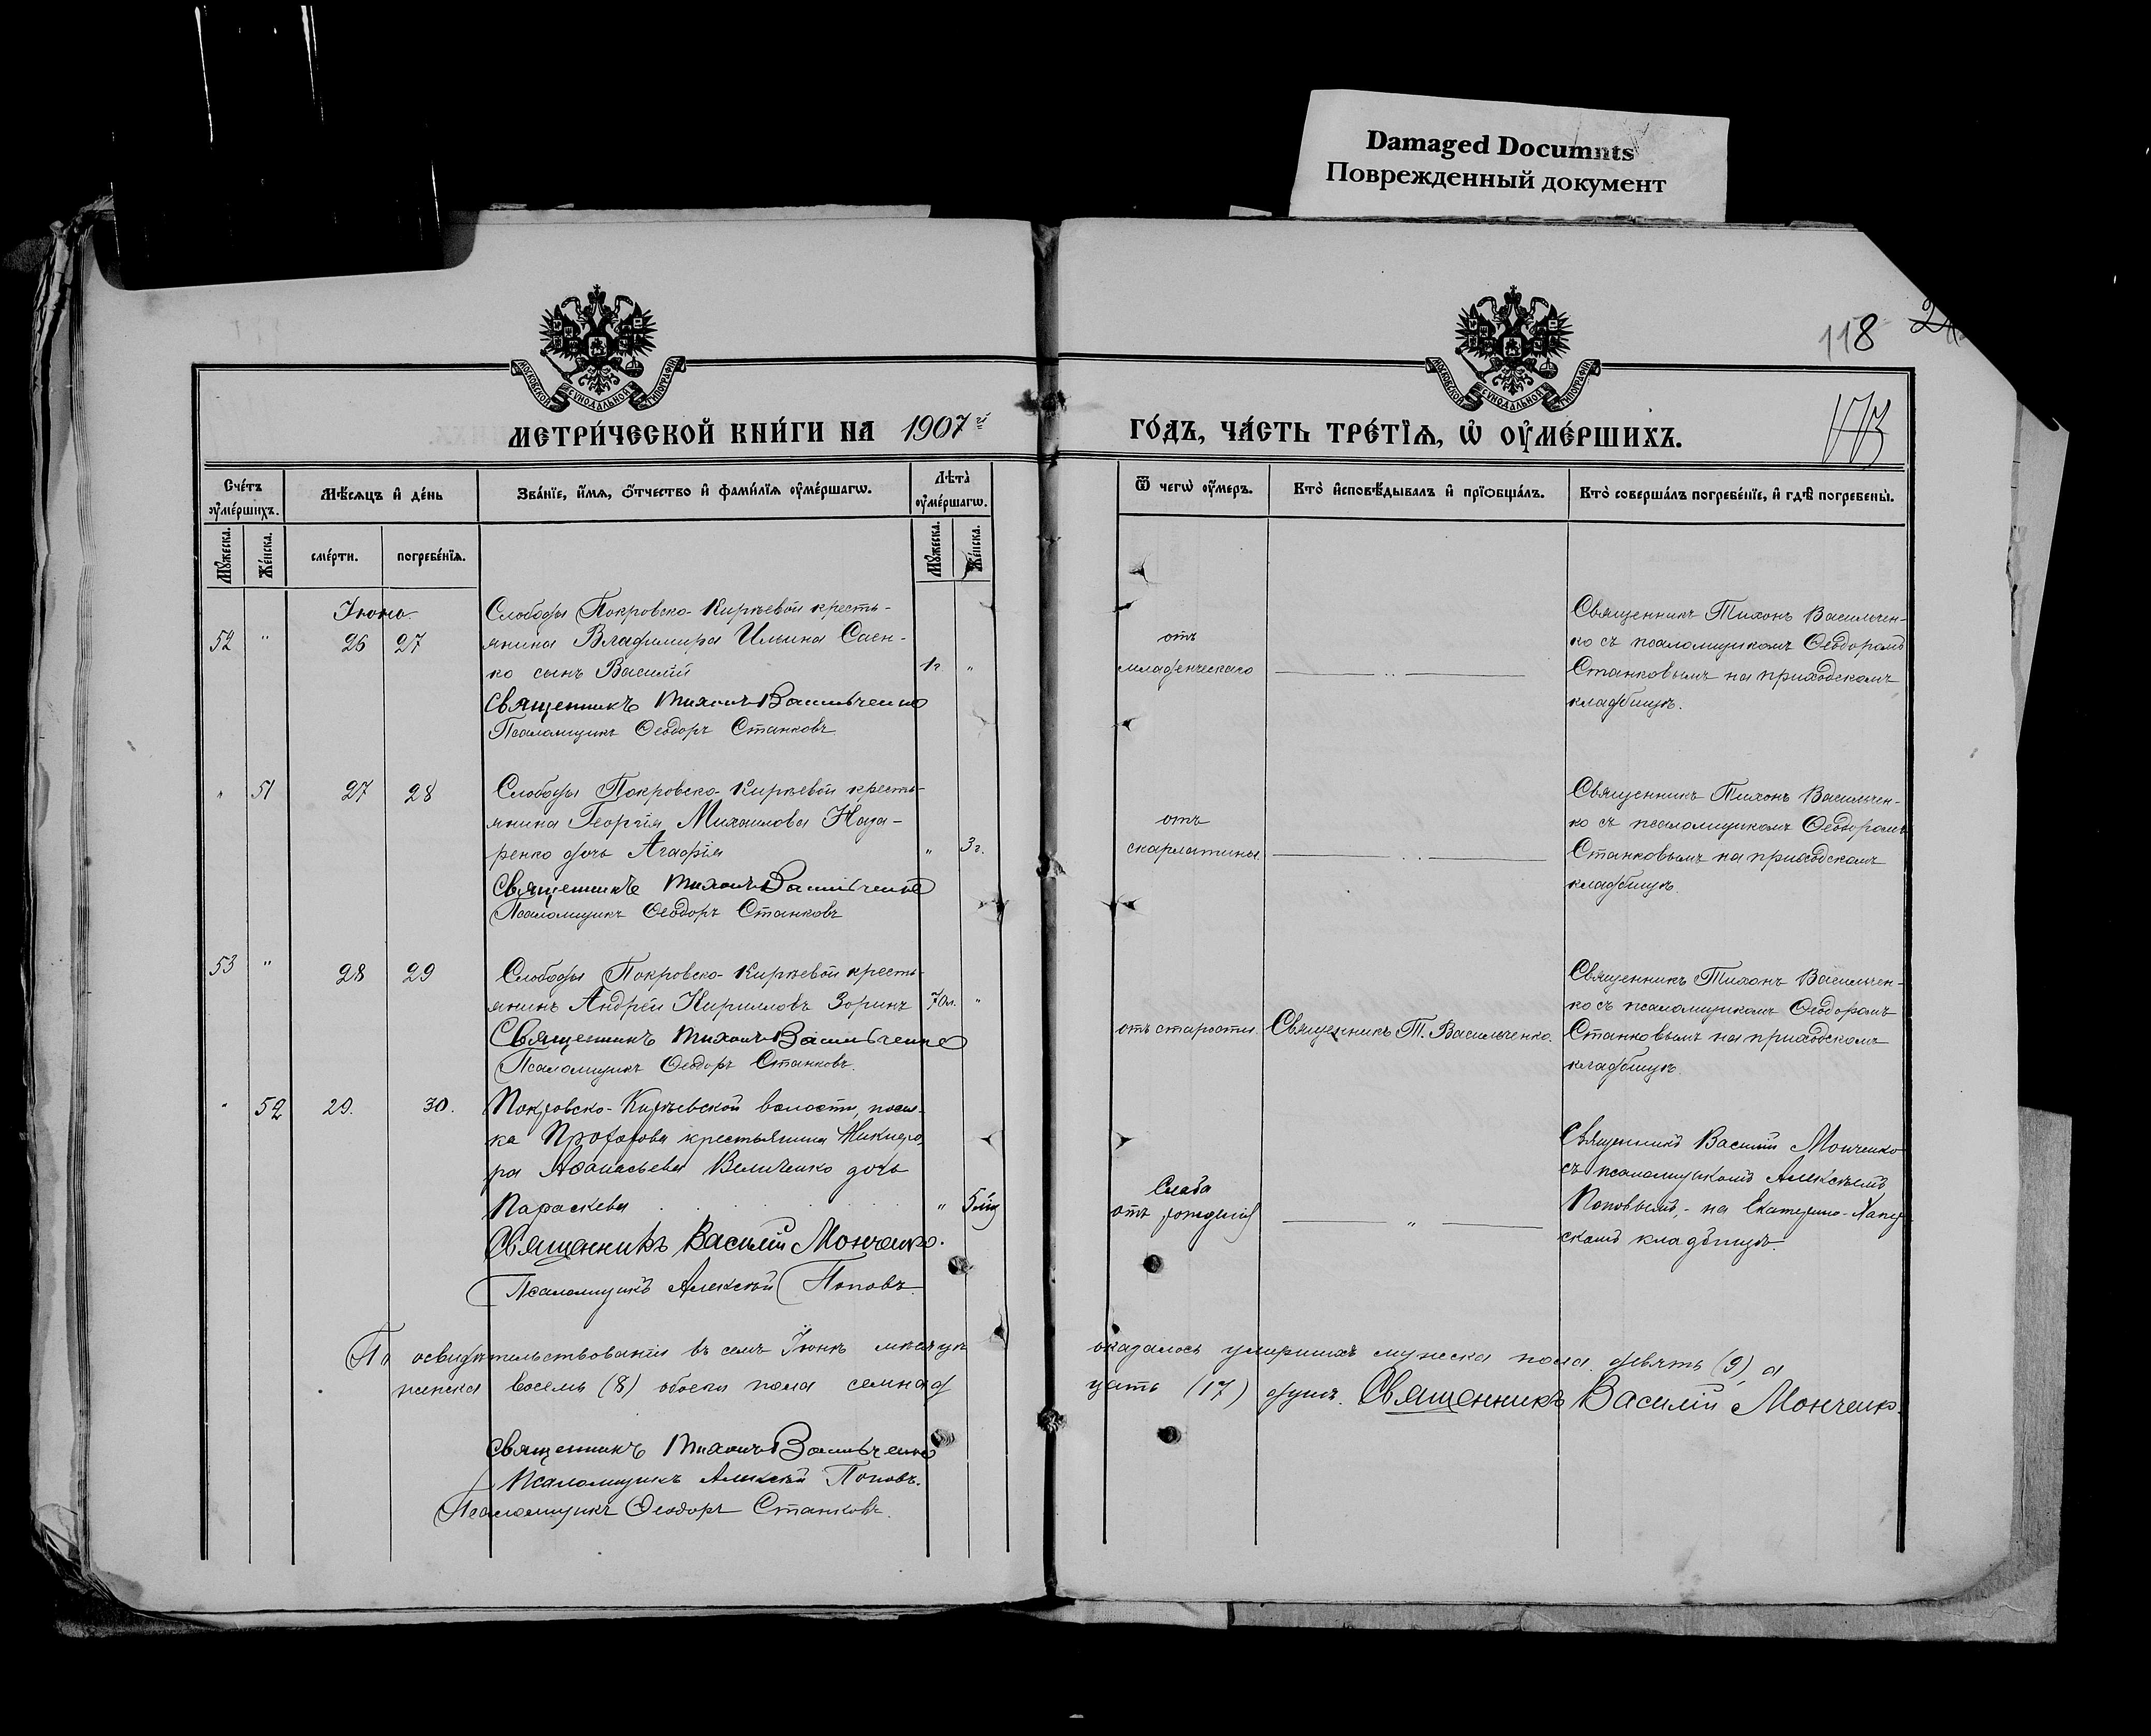 Damaged Documnts
Поврежденный документ
118
МОСКОВСКОЙ СѴНОДАЛЬНОЙ ТИПОГРАФІИ
МОСКОВСКОЙ СѴНОДАЛЬНОЙ ТИПОГРАФІИ
МЕТРИ́ЧЕСКОЙ КНИ́ГИ НА 1907 й
ГО́ДЪ, ЧА́СТЬ ТРЕ́ТЇѦ, Ѡ҆ ОУ҆МЕ́РШИХЪ.
Сче́тъ оу҆ме́ршихъ.
Мꙋ́жеска.
Же́нска.
Мѣ́сѧцъ и҆ де́нь
сме́рти.
погребе́нїѧ.
Зва́нїе, и҆́мѧ, о҆́тчество и҆ фами́лїѧ оу҆ме́ршагѡ.
Лѣта̀ оу҆ме́ршагѡ.
Мꙋ́жеска.
Же́нска.
Ѿ чегѡ̀ оу҆́меръ.
Кто̀ и҆сповѣ́дывалъ и҆ прїѡбща́лъ.
Кто̀ соверша́лъ погребе́нїе, и҆ гдѣ̀ погребены̀.
Іюнь
Слободы Покровско-Кирѣевой кресть-
52 " 26 27 янина Владимира Ильина Саен-
ко сынъ Василій 1г. "
Священникъ Тихонъ Васильченко
Псаломщикъ Ѳеодоръ Станковъ
отъ
младенческаго
Священникъ Тихонъ Васильчен-
ко съ псаломщикомъ Ѳеодоромъ
Станковымъ на приходскомъ
кладбищѣ.
" 51 27 28 Слободы Покровско-Кирѣевой кресть-
янина Георгія Михаилова Наза-
ренко дочь Агафія " 3г.
Священникъ Тихонъ Васильченко
Псаломщикъ Ѳеодоръ Станковъ
отъ
скарлатины
Священникъ Тихонъ Васильчен-
ко съ псаломщикомъ Ѳеодоромъ
Станковымъ на приходскомъ
кладбищѣ.
53 " 28 29 Слободы Покровско-Кирѣевой кресть-
янинъ Андрей Кирилловъ Зоринъ 70л. "
Священникъ Тихонъ Васильченко
Псаломщикъ Ѳеодоръ Станковъ.
отъ старости. Священникъ Т. Васильченко.
Священникъ Тихонъ Васильчен-
ко съ псаломщикомъ Ѳеодоромъ
Станковымъ на приходскомъ
кладбищѣ.
" 52 29. 30. Покровско-Кирѣевской волости, посел-
ка крестьянина Никифо
ра Аѳанасьева Величенко дочь
Параскева " 5
Священникъ Василій Монченко.
Псаломщикъ Алексѣй Поповъ.
Слаба
отъ рожденія
Священникъ Василій Монченко
съ псаломщикомъ Алексѣемъ
Поповымъ, - на
скомъ кладбищѣ.
По освидѣтельствованіи въ семъ Іюнѣ мѣсяцѣ оказалось умершихъ мужеска пола девять (9), а
женска восемь (8) обоего пола семнад цать (17) душъ. Священникъ Василій Монченко.
Священникъ Тихонъ Васильченко
Псаломщикъ Алексѣй Поповъ.
Псаломщикъ Ѳеодоръ Станковъ.